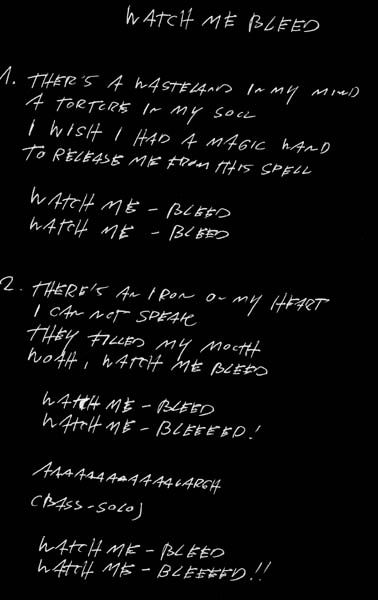 WATCH ME BLEED
1. THERE'S A WASTELAND IN MY MIND
A TORTURE IN MY SOUL
I WISH I HAD A MAGIC WAND
TO RELEASE ME FROM THIS SPELL
WATCH ME - BLEED
WATCH ME - BLEED
2. THERE'S AN IRON ON MY HEART
I CAN NOT SPEAK
THEY FILLED MY MOUTH
WOAH, WATCH ME BLEED
WATCH ME - BLEED
WATCH ME - BLEEEED!
AAAAAAAAAAAAUARGH
(BASS-SOLO)
WATCH ME - BLEED
WATCH ME - BLEEEED!!